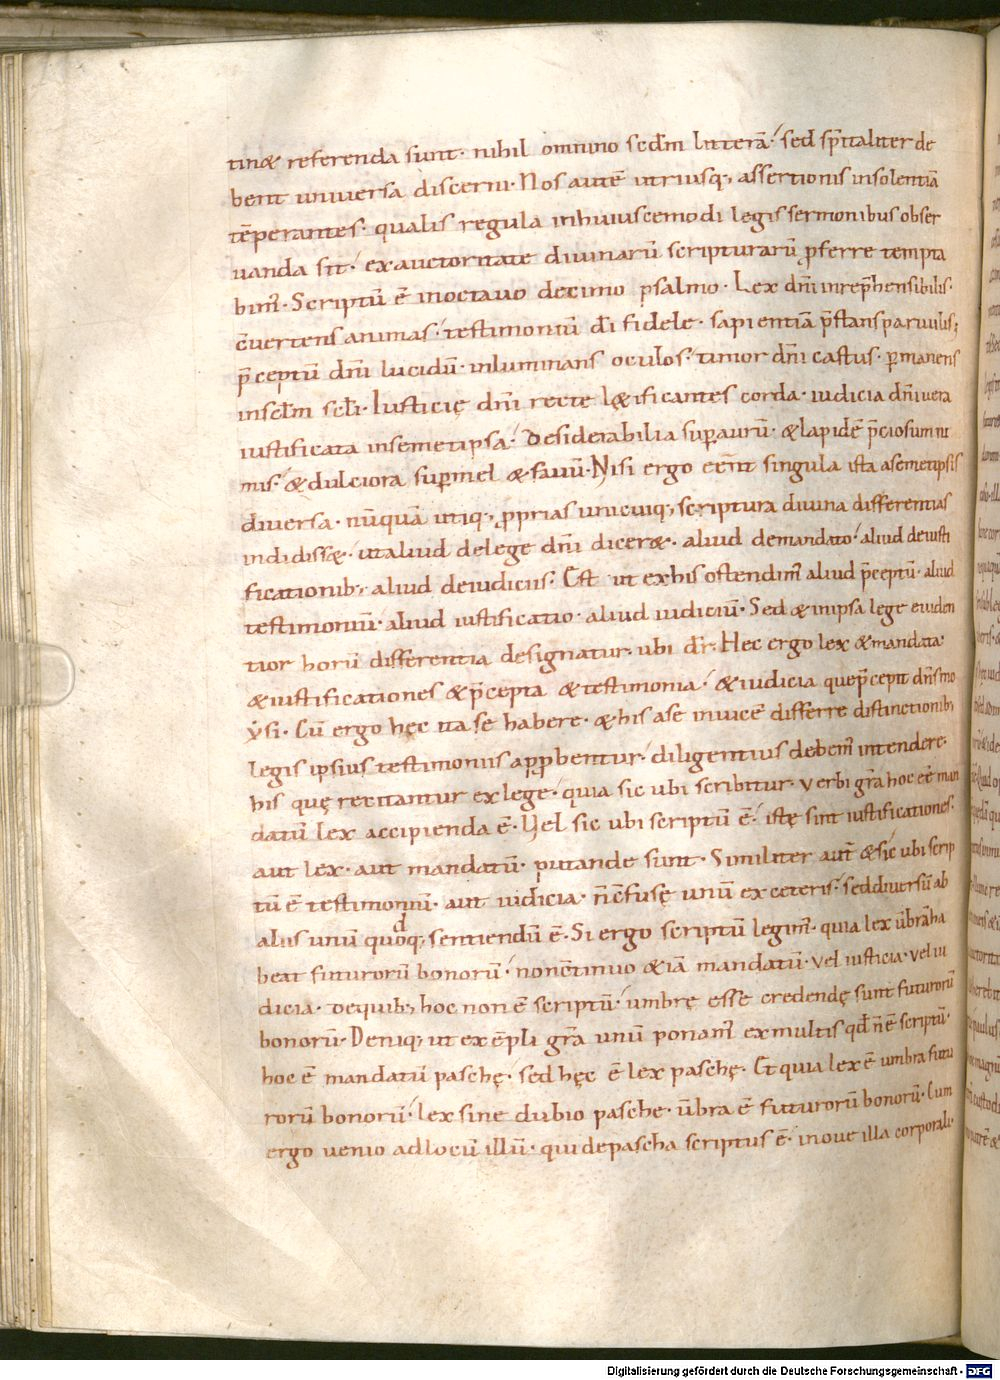 tinæ referenda sunt· nihil omnino scd̄m litterā· sed spīitaliter de
bent universa discerni· Nos autē utriusq; assertionis insolentiā
tēperantes· qualis regula inhuiuscemodi legis sermonibus obser
uanda sit· exauctoritate diuinarū scripturarū ꝓferre tempta
bim᾽· Scriptū ē inoctauo decimo psalmo· Lex dn̄i inrep̄hensibilis·
c̄uertens animas· testimoniū dī fidele· sapientiā p̄stans paruulis;
p̄ceptū dn̄i lucidū· inluminans oculos· timor dn̄i castus· ꝑmanens
insclm̄ scli· Iusticię dn̄i recte lætificantes corda· iudicia dn̄i uera
iustificata insemetipsa· Desiderabilia suꝑaurū· &lapidē p̄ciosum ni
mis· &dulciora suꝑmel & fauū· Nisi ergo eēnt singula ista asemetipsis
diuersa· nūquā utiq; ꝓprias unicuiq; scriptura diuina differentias
indidissæ· utaliud delege dn̄i diceræ· aliud demandato· aliud deiusti
ficationib; aliud deiudiciis· Est ut exhis ostendim᾽ aliud p̄ceptū· aliud
testimoniū· aliud iustificatio· aliud iudiciū· Sed & inipsa lege euiden
tior horū differentia designatur· ubi dr̄· Hec ergo lex &mandata·
&iustificationes &p̄cepta &testimonia· &iudicia quep̄cepit dn̄s mo
ẏsi· Cū ergo hęc ita se habere· &his ase inuicē differre distinctionib;
legis ipsius testimoniis apꝓbentur· diligentius debem᾽ intendere·
his quę recitantur exlege· quia sic ubi scribitur· verbi gr̄a hoc eē man
datū lex accipienda ē· Vel sic ubi scriptū ē· istę sint iustificationes·
aut lex· aut mandatū· putande sunt· Similiter aut̄ &sic ubi scrip
tū ē testimoniū· aut iudicia· n̄c̄fusę unū ex ceteris· seddiuersū ab
aliis unū qđoq; sentiendū ē· Si ergo scriptū legim᾽· quia lex ūbrāha
beat futurorū bonorū· nonc̄tinuo &iā mandatū· vel iusticia· vel iu
dicia· dequib; hoc non ē scriptū· umbrę esse credendę sunt futurorū
bonorū· Deniq; ut exēpli gr̄a unū ponam᾽ exmultis qđ n̄ ē scriptū·
hoc ē mandatū paschę· sed hęc ē lex paschę· Et quia lex ē umbra futu
rorū bonorū· lex sine dubio pasche· ūbra ē futurorū bonorū· Cum
ergo uenio adlocū illū· qui depascha scriptus ē· inoue illa corporali·
Digitalisierung gefördert durch die Deutsche Forschungsgemeinschaft - DFG